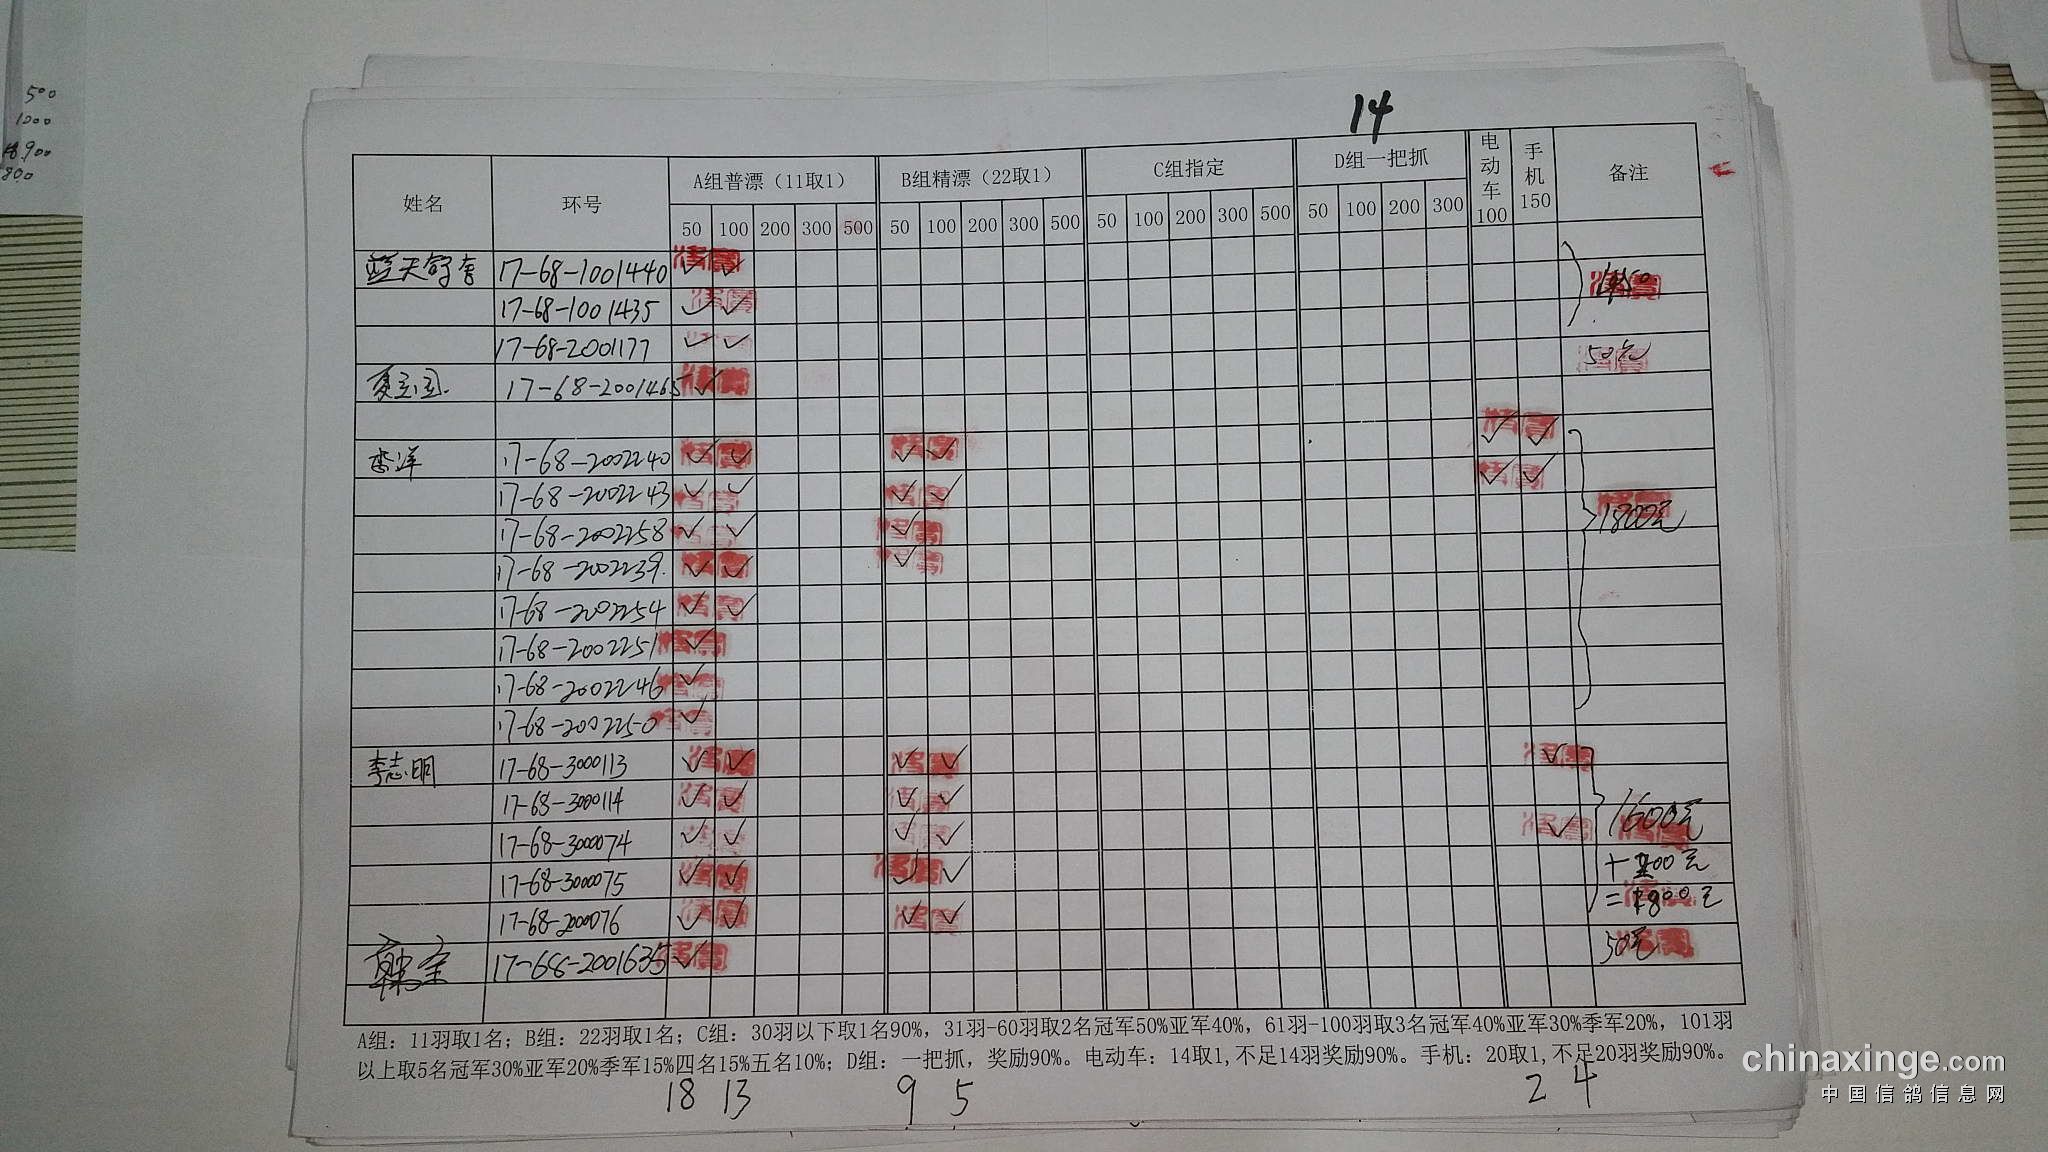 500
1000
800
14
姓名 环号 A组普漂（11取1） B组精漂（22取1） C组指定 D组一把抓 电动车100 手机150 备注
50 100 200 300 500 50 100 200 300 500 50 100 200 300 500 50 100 200 300
17-68-1001440 ✓ ✓
17-68-1001435 ✓ ✓
17-68-2001177 ✓ ✓ 50元
17-68-2001465 ✓
李洋 17-68-2002240 ✓ ✓ ✓ ✓ ✓ ✓
17-68-2002243 ✓ ✓ ✓ ✓ ✓ ✓
17-68-2002258 ✓ ✓ ✓ 1800元
17-68-2002239 ✓ ✓ ✓
17-68-2002254 ✓ ✓
17-68-2002251 ✓
17-68-2002246 ✓
17-68-2002250 ✓
李志明 17-68-3000113 ✓ ✓ ✓ ✓ ✓
17-68-3000114 ✓ ✓ ✓ ✓ 1600元
17-68-3000074 ✓ ✓ ✓ ✓ ✓
17-68-3000075 ✓ ✓ ✓ ✓
17-68-2000076 ✓ ✓ ✓ ✓
17-68-2001635 ✓ 50元
A组：11羽取1名；B组：22羽取1名；C组：30羽以下取1名90%，31羽-60羽取2名冠军50%亚军40%，61羽-100羽取3名冠军40%亚军30%季军20%，101羽
以上取5名冠军30%亚军20%季军15%四名15%五名10%；D组：一把抓，奖励90%。电动车：14取1,不足14羽奖励90%。手机：20取1,不足20羽奖励90%。
18 13 9 5 2 4
chinaxinge.com
中国信鸽信息网